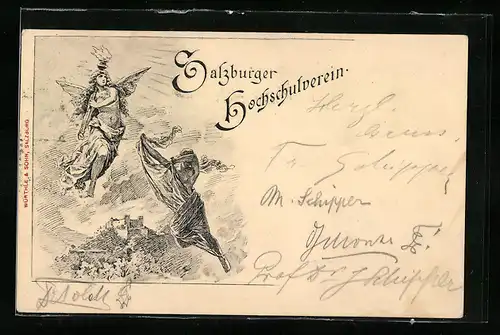 Salzburger
Hochschulverein.
WÜRTHLE & SOHN, SALZBURG
Herzl.
Gruss
Fr. Schipper
M. Schipper
Prof Dr J Schipper